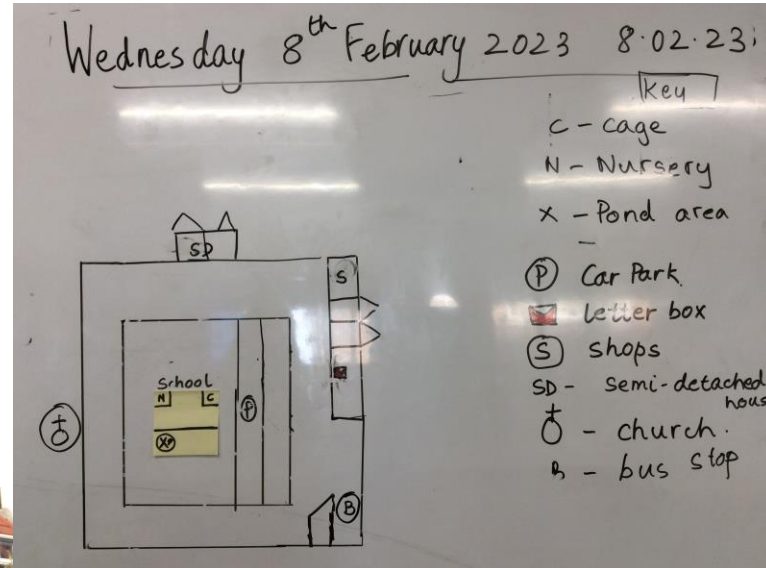 Wednesday 8th February 2023 8.02.23
Key
C - cage
N - Nursery
X - Pond area
P Car Park
letter box
S shops
SD - semi-detached
hous
- church.
B - bus stop
SD
S
School
N C
P
X
B